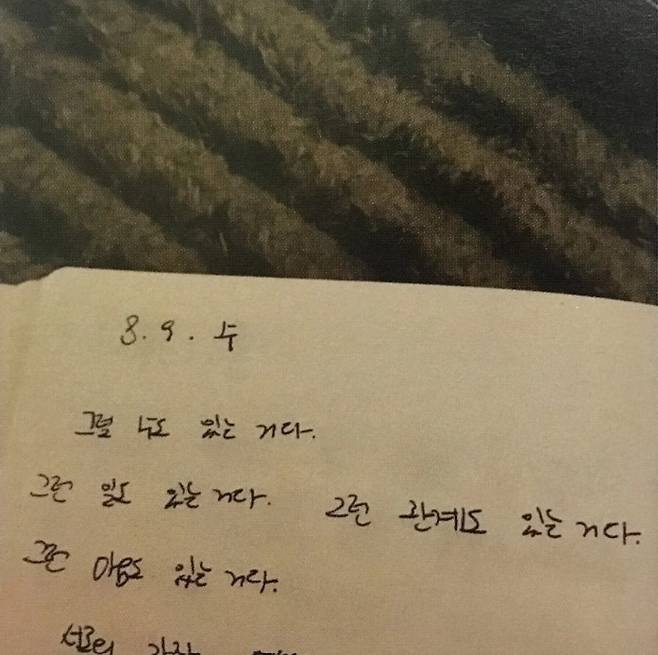 8. 9. 수
그럴 수도 있는 거다.
그런 일도 있는 거다. 그런 관계도 있는 거다.
그런 마음도 있는 거다.
서로의 가장